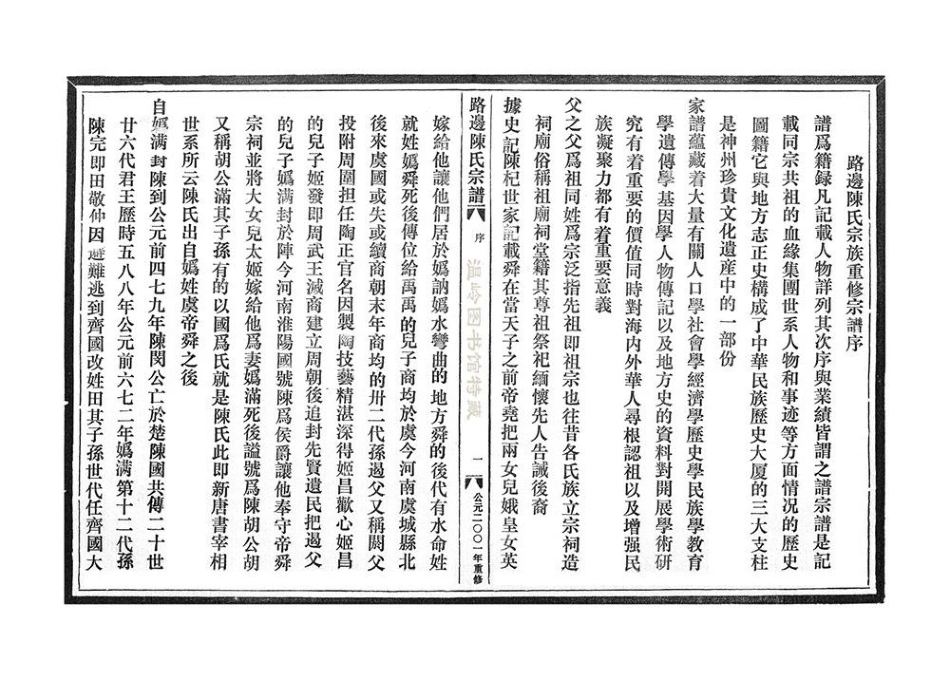 路邊陳氏宗族重修宗譜序
譜爲籍録凡記載人物詳列其次序與業績皆謂之譜宗譜是記
載同宗共祖的血緣集團世系人物和事迹等方面情況的歷史
圖籍它與地方志正史構成了中華民族歷史大厦的三大支柱
是神州珍貴文化遺産中的一部份
家譜蘊藏着大量有關人口學社會學經濟學歷史學民族學教育
學遺傳學基因學人物傳記以及地方史的資料對開展學術研
究有着重要的價值同時對海内外華人尋根認祖以及增强民
族凝聚力都有着重要意義
父之父爲祖同姓爲宗泛指先祖即祖宗也往昔各氏族立宗祠造
祠廟俗稱祖廟祠堂籍其尊祖祭祀緬懷先人告誡後裔
據史記陳杞世家記載舜在當天子之前帝堯把兩女兒娥皇女英
路邊陳氏宗譜
序
温岭图书馆特藏
一
公元二〇〇一年重修
嫁給他讓他們居於嬀訥嬀水彎曲的地方舜的後代有水命姓
就姓嬀舜死後傳位給禹禹的兒子商均於虞今河南虞城縣北
後來虞國或失或續商朝末年商均的卅二代孫遏父又稱閼父
投附周圍担任陶正官名因製陶技藝精湛深得姬昌歡心姬昌
的兒子姬發即周武王滅商建立周朝後追封先賢遺民把遏父
的兒子嬀满封於陣今河南淮陽國號陳爲侯爵讓他奉守帝舜
宗祠並將大女兒太姬嫁給他爲妻嬀滿死後謚號爲陳胡公胡
又稱胡公滿其子孫有的以國爲氏就是陳氏此即新唐書宰相
世系所云陳氏出自嬀姓虞帝舜之後
自嬀满封陳到公元前四七九年陳閔公亡於楚陳國共傳二十世
廿六代君王歷時五八八年公元前六七二年嬀满第十二代孫
陳完即田敬仲因避難逃到齊國改姓田其子孫世代任齊國大